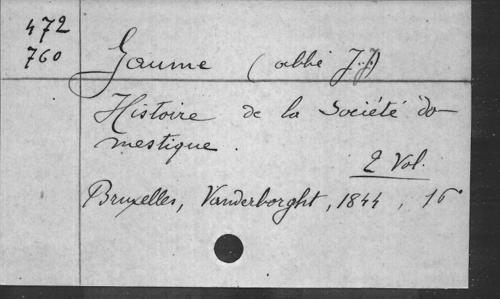 472
760
Gaume (abbé J.-J.)
Histoire de la Société do-
mestique.
2 Vol.
Bruxelles, Vanderborght, 1844, 16°